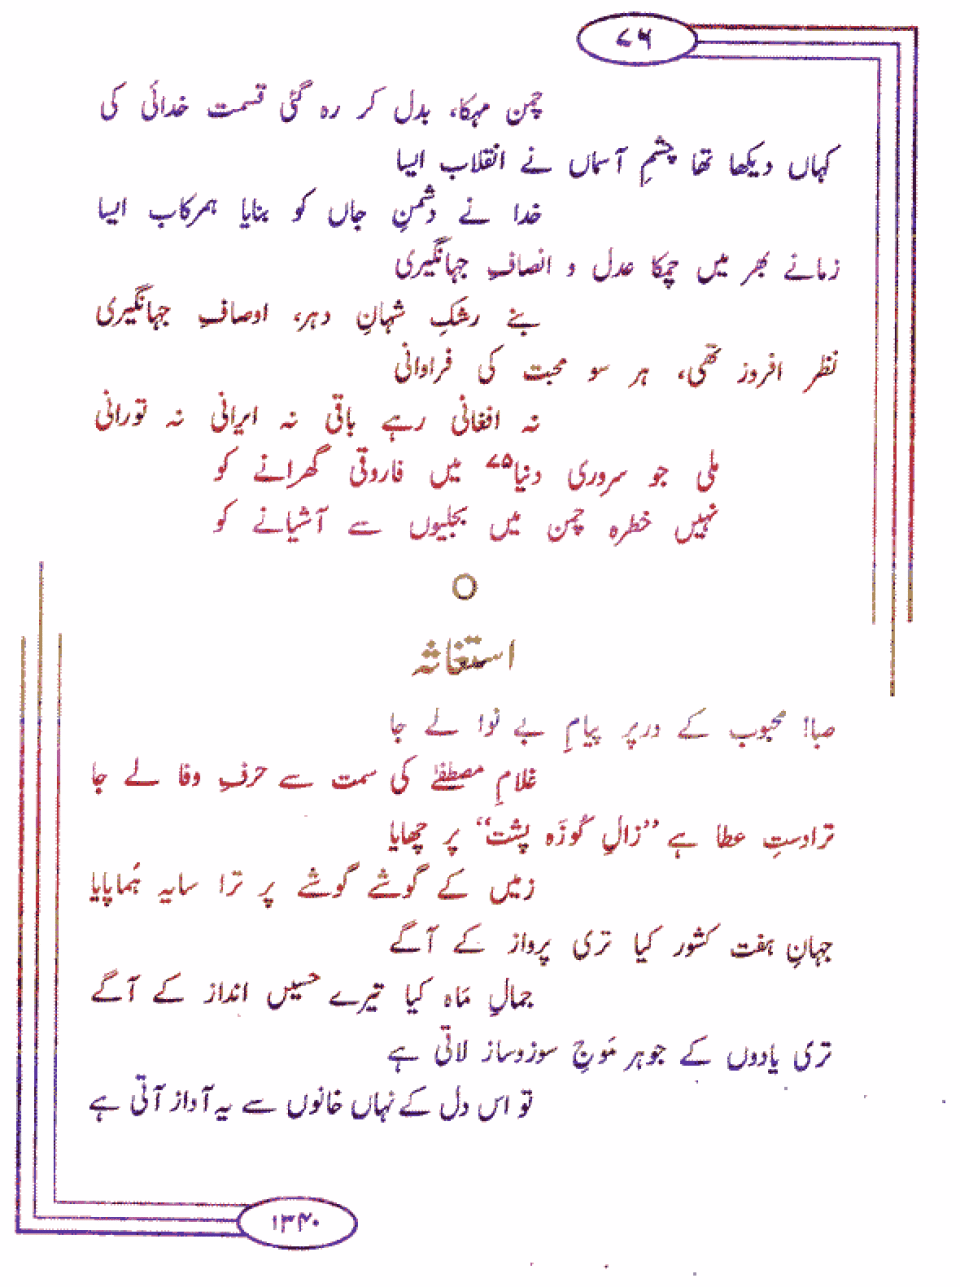 ۷۶
چمن مہکا، بدل کر رہ گئی قسمت خدائی کی
کہاں دیکھا تھا چشمِ آسماں نے انقلاب ایسا
خدا نے دشمنِ جاں کو بنایا ہمرکاب ایسا
زمانے بھر میں چمکا عدل و انصافِ جہانگیری
بنے رشکِ شہانِ دہر، اوصافِ جہانگیری
نظر افروز تھی، ہر سو محبت کی فراوانی
نہ افغانی رہے باقی نہ ایرانی نہ تورانی
ملی جو سروری دنیا۷۵ میں فاروقی گھرانے کو
نہیں خطرہ چمن میں بجلیوں سے آشیانے کو
استغاثہ
صبا! محبوب کے در پر پیامِ بے نوا لے جا
غلامِ مصطفےٰ کی سمت سے حرفِ وفا لے جا
ترا دستِ عطا ہے ”زالِ کُوزَہ پشت“ پر چھایا
زمیں کے گوشے گوشے پر ترا سایہ ہُما پایا
جہانِ ہفت کشور کیا تری پرواز کے آگے
جمالِ مَاہ کیا تیرے حسیں انداز کے آگے
تری یادوں کے جوہر مَوجِ سوز و ساز لاتی ہے
تو اس دل کے نہاں خانوں سے یہ آواز آتی ہے
۱۳۴۰